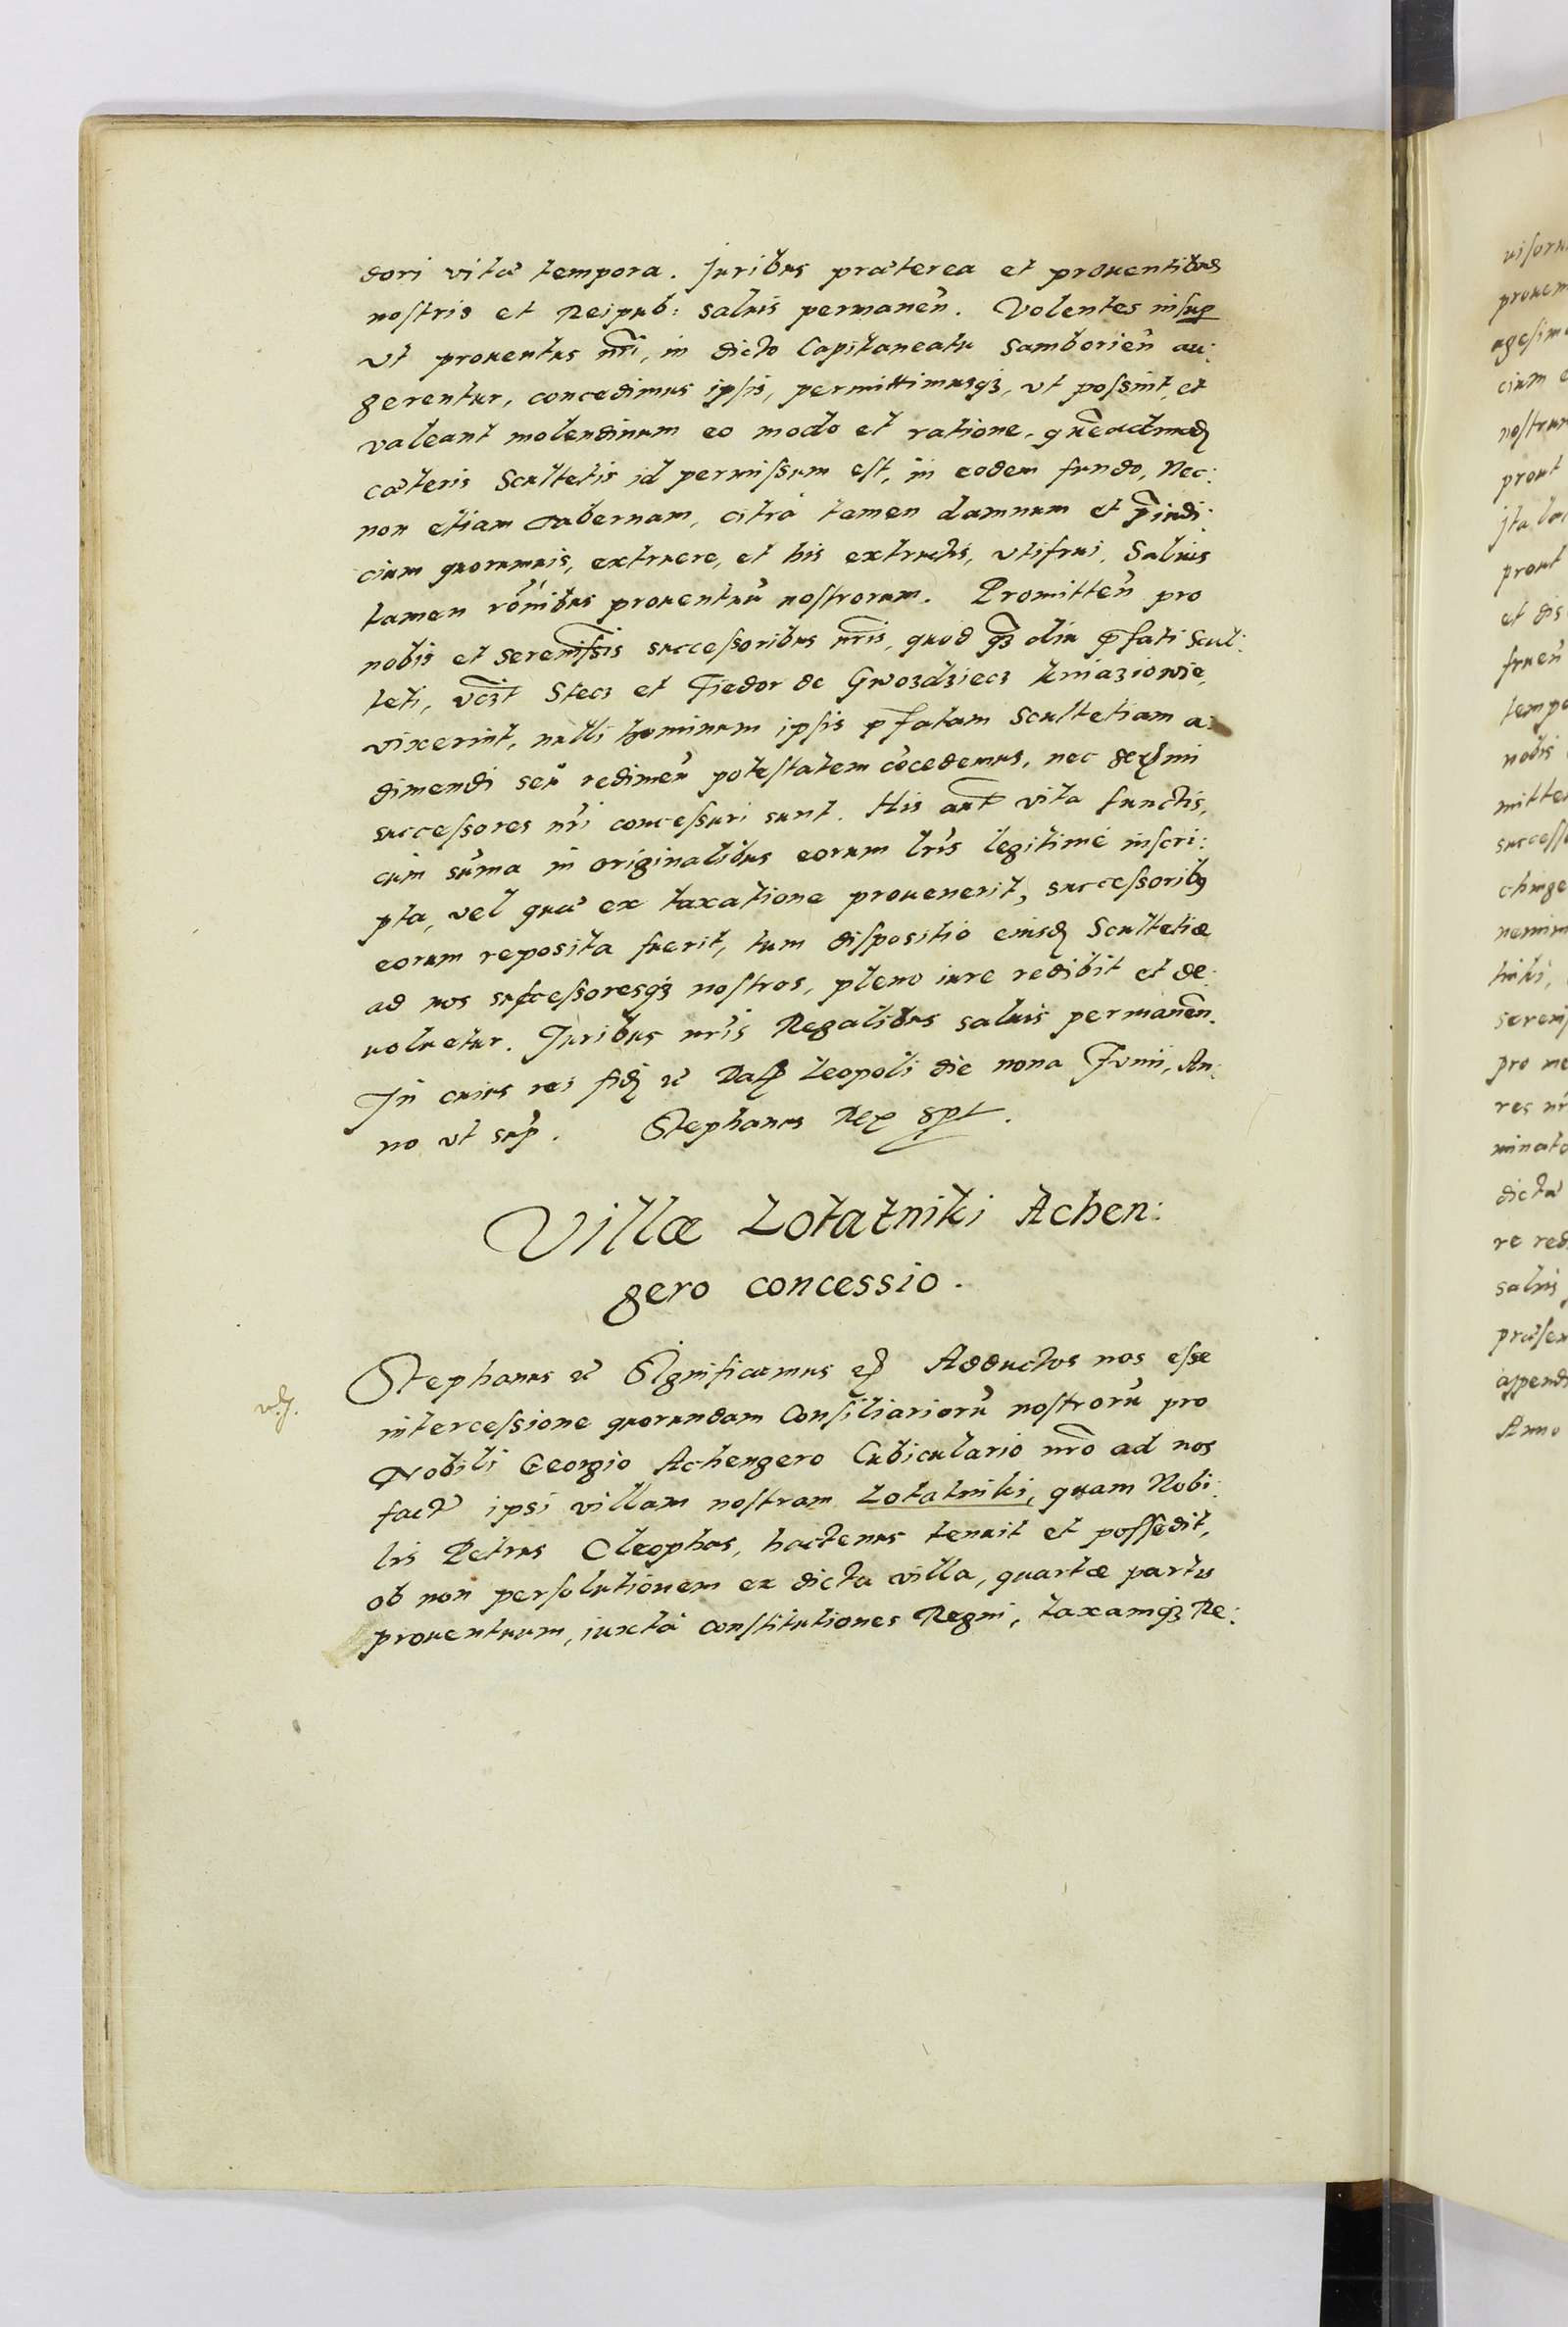 dori vitæ tempora. Juribus præterea et prouentibus
nostris et Reipub: saluis permaneñ. Volentes insup
vt prouentus nri, in dicto Capitaneatu Samborieñ au:
gerentur, concedimus ipsis, permittimusqȝ, vt possint, et
valeant molendinum eo modo et ratione, quẽadmodũ
cæteris Scultetis id permissum est, in eodem fundo, Nec:
non etiam tabernam, citrà tamen damnum et p̃iudi:
cium quorumuis, extruere, et his extructis, vtifrui. Saluis
tamen rõnibus prouentuũ nostrorum. Promitteñ pro
nobis et Sereniss̃is successoribus nris, quod qȝ diu p̱fati Scul:
teti, vcȝt Stecȝ et Fiedor de Gwozdziecȝ kniaziowie,
vixerint, nulli hominum ipsis p̱fatam Scultetiam a:
dimendi seu redimeñ potestatem cõcedemus, nec Serẽmi
successores nri concessuri sunt. His aut vita functis,
cum sũma in originalibus eorum lris legitimè inscri:
pta, vel quæ ex taxatione prouenerit, successoribꝰ
eorum reposita fuerit, tum dispositio eiusd Scultetiæ
ad nos successoresqȝ nostros, pleno iure redibit et de:
uoluetur. Juribus nris Regalibus saluis permaneñ.
In cuius rei fid ꝛc Dat Leopoli die nona Junii, An:
no vt sup. Stephanus Rex spt.
Villæ Lotatniki Achen:
gero concessio.
Stephanus ꝛc Significamus ꝛc Adductos nos esse
intercessione quorundam Consiliariorũ nostrorũ pro
Nobili Georgio Achengero Cubiculario nro ad nos
fact ipsi villam nostram Lotatniki, quam Nobi:
lis Petrus Cleophas, hactenus tenuit et possedit,
ob non persolutionem ex dicta villa, quartæ partis
prouentuum, iuxtà constitutiones Regni, taxamqȝ Re: